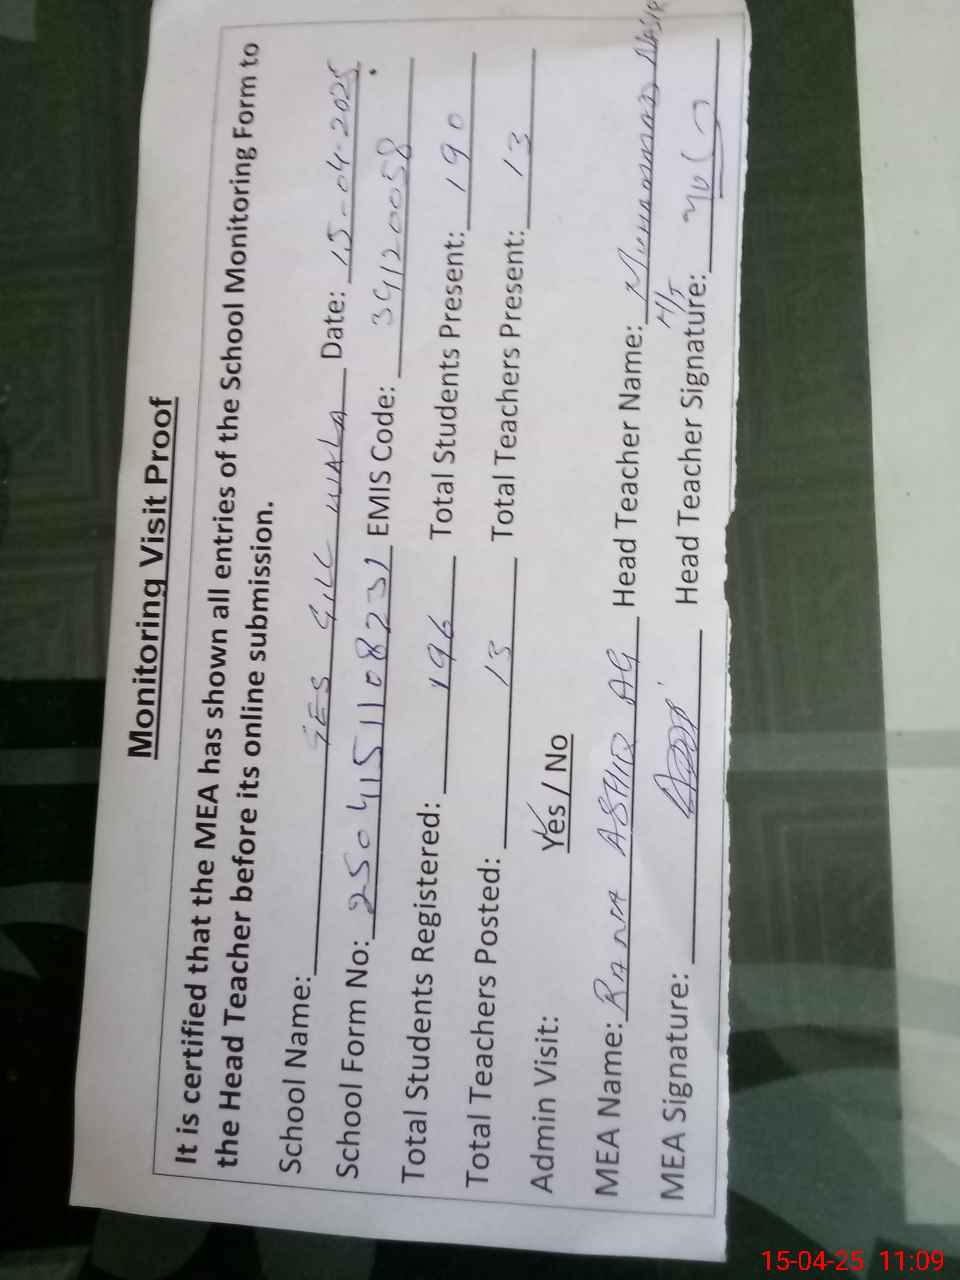 Monitoring Visit Proof
It is certified that the MEA has shown all entries of the School Monitoring Form to
the Head Teacher before its online submission.
School Name: GES GILL WALA Date: 15-04-2025
School Form No: 2504151108231 EMIS Code: 39120058
Total Students Registered: 196 Total Students Present: 190
Total Teachers Posted: 13 Total Teachers Present: 13
Admin Visit: Yes / No
MEA Name: RANA ASHIQ AG Head Teacher Name: Muhammad NASIR
H/T
MEA Signature: Head Teacher Signature:
15-04-25 11:09